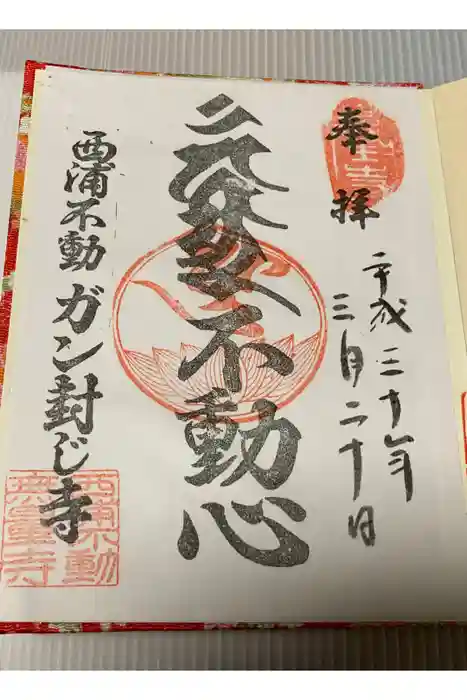 奉拝
平成三十年
三月二十日
不動心
西浦不動 ガン封じ寺
西浦不動
無量寺